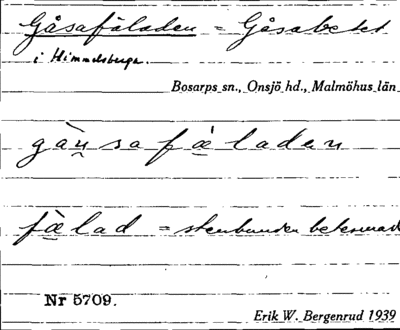 Gåsafäladen = Gåsabetet
i Himmelsberga.
Bosarps sn., Onsjö hd., Malmöhus län
gàn sa fǽladen
fælad = stenbunden betesmark
Nr 5709.
Erik W. Bergenrud 1939